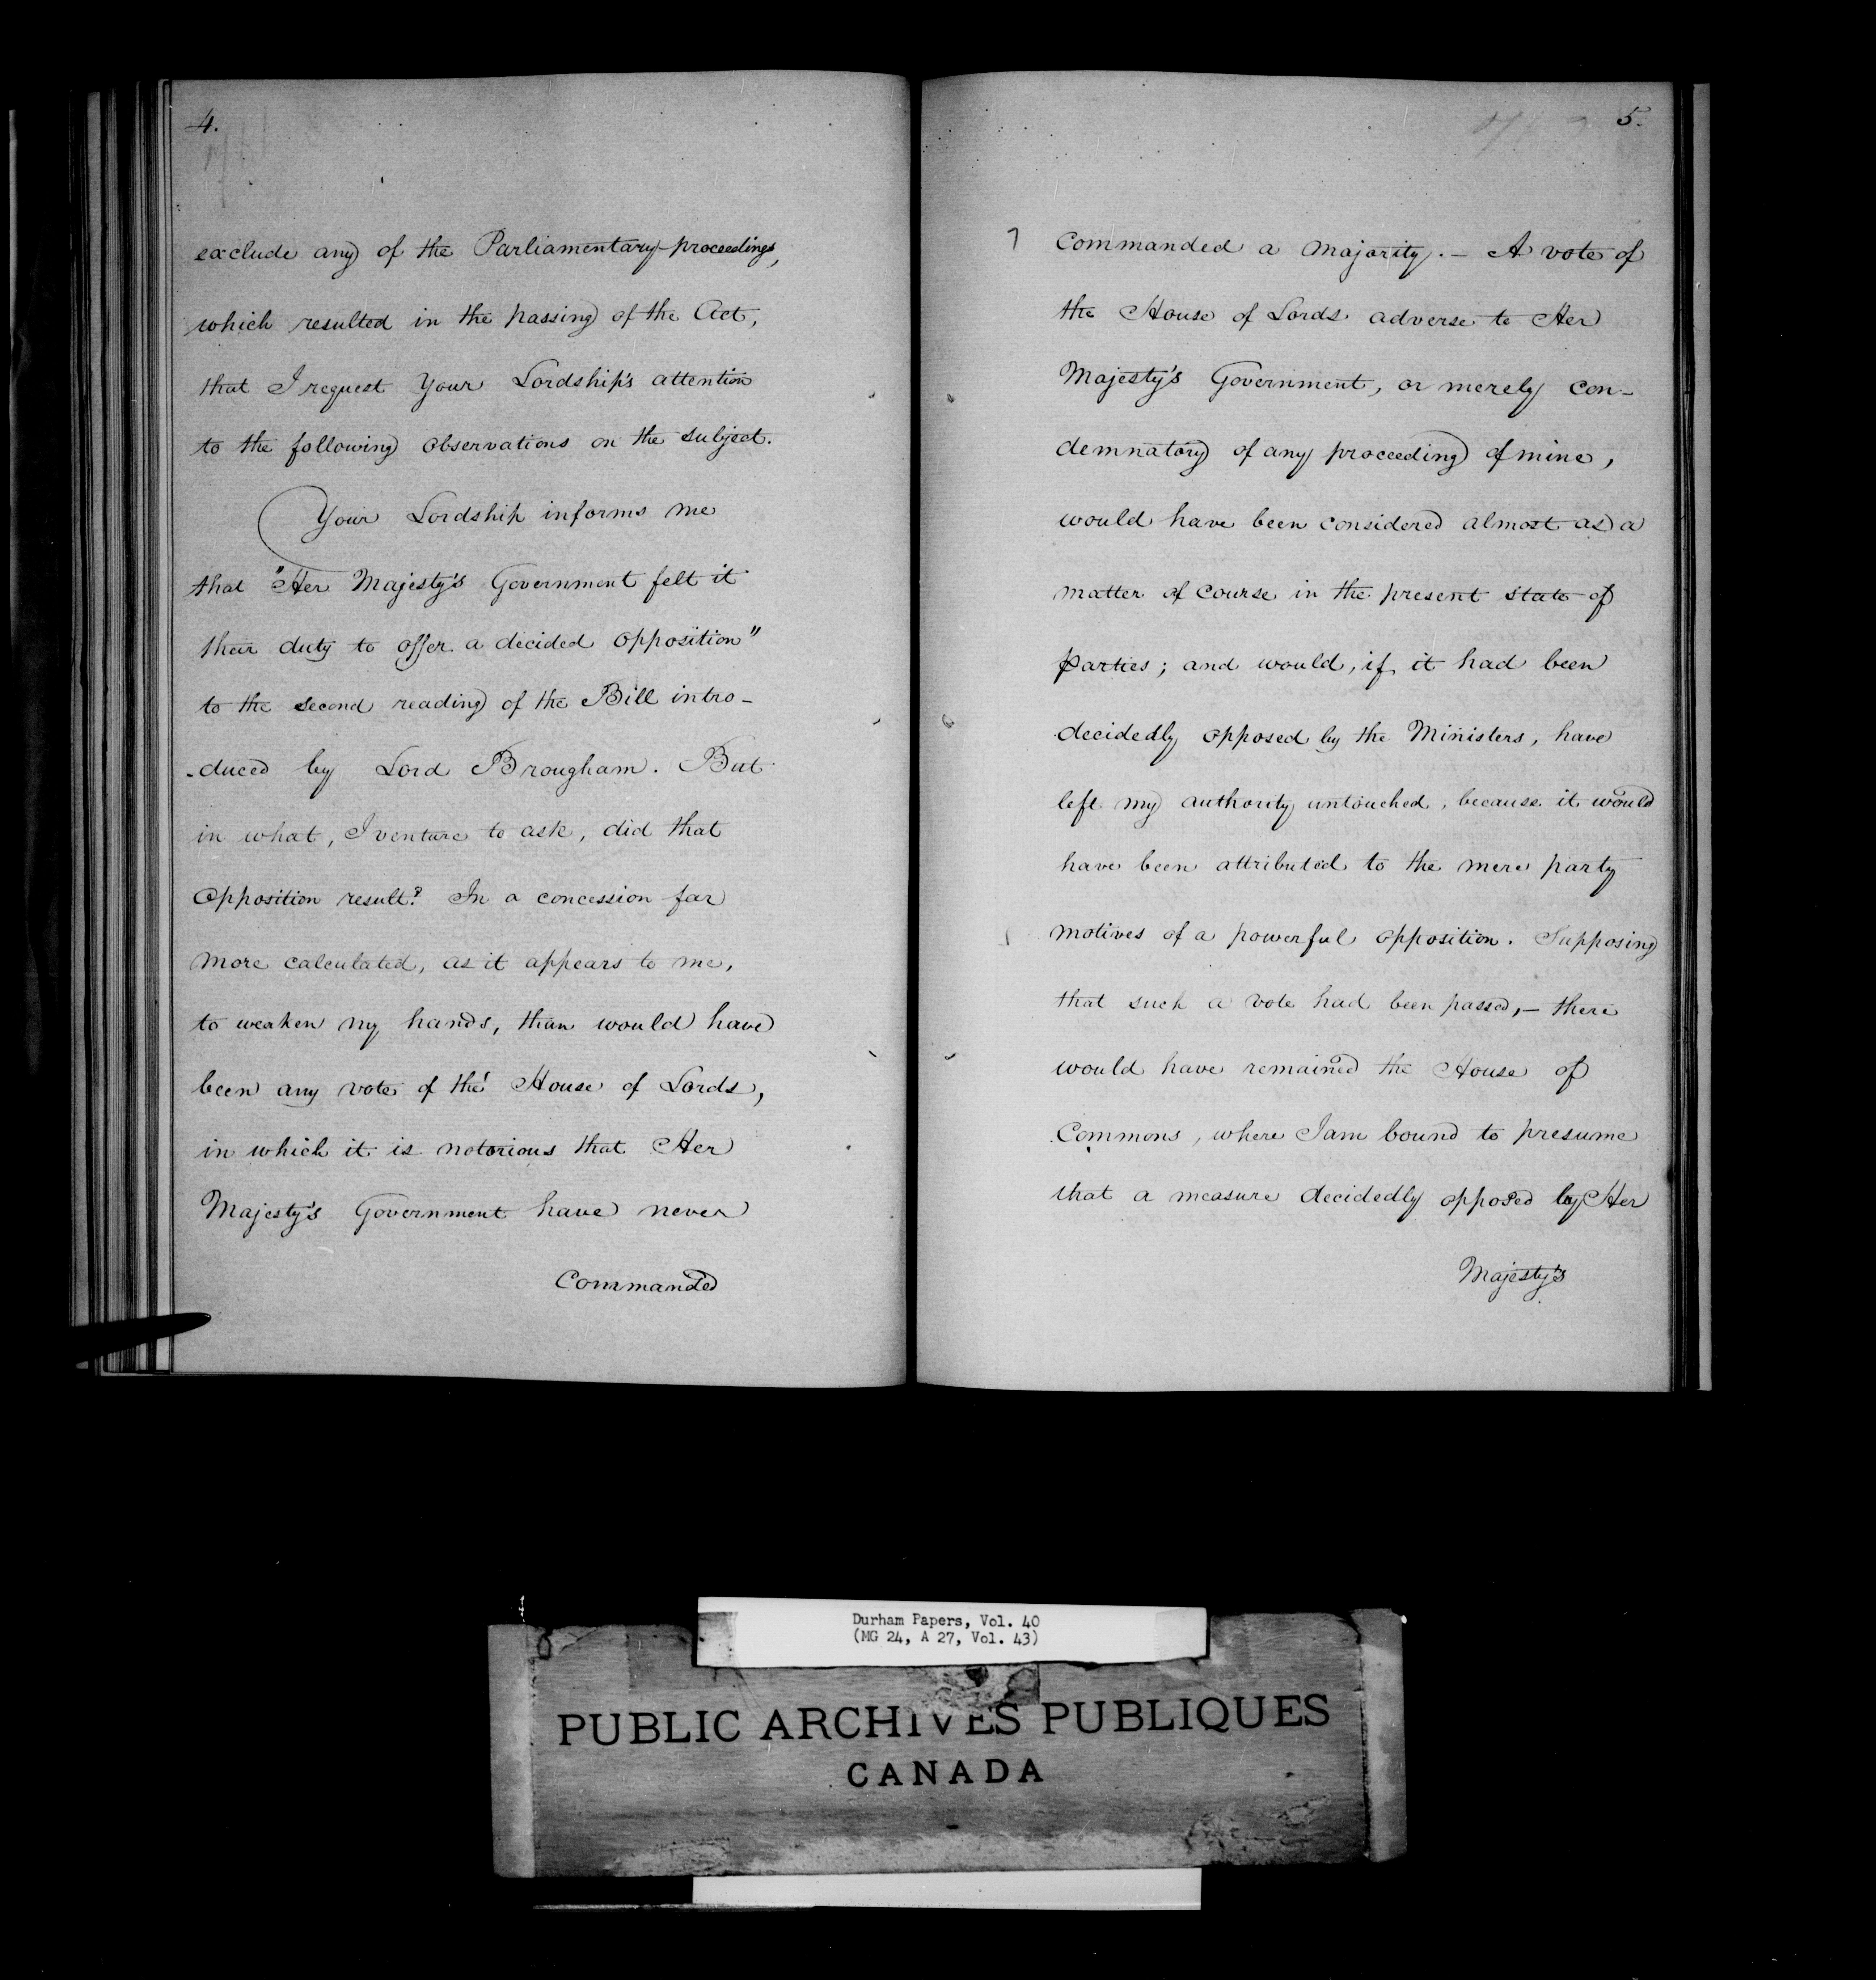 4.
exclude any of the Parliamentary proceedings,
which resulted in the passing of the Act,
that I request Your Lordship's attention
to the following observations on the subject.
Your Lordship informs me
that "Her Majesty's Government felt it
their duty to offer a decided opposition"
to the second reading of the Bill intro-
-duced by Lord Brougham. But
in what, I venture to ask, did that
opposition result? In a concession far
more calculated, as it appears to me,
to weaken my hands, than would have
been any vote of the House of Lords,
in which it is notorious that Her
Majesty's Government have never
Commanded
5.
Commanded a majority. – A vote of
the House of Lords adverse to Her
Majesty's Government, or merely con-
demnatory of any proceeding of mine,
would have been considered almost as a
matter of course in the present state of
parties; and would, if it had been
decidedly opposed by the Ministers, have
left my authority untouched, because it would
have been attributed to the mere party
motives of a powerful opposition. Supposing
that such a vote had been passed, – there
would have remained the House of
Commons, where I am bound to presume
that a measure decidedly opposed by Her
Majesty's
Durham Papers, Vol. 40
(MG 24, A 27, Vol. 43)
PUBLIC ARCHIVES PUBLIQUES
CANADA